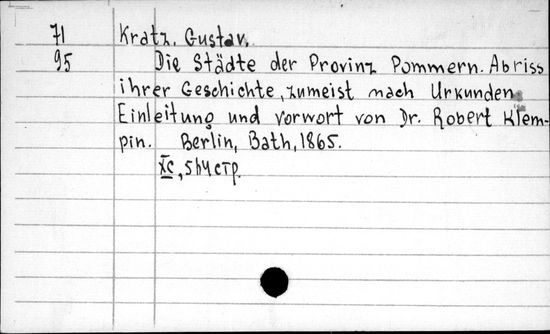 71 Kratz, Gustav.
95 Die Städte der Provinz Pommern. Abriss
ihrer Geschichte, zumeist nach Urkunden
Einleitung und vorwort von Dr. Robert Klem-
pin. Berlin, Bath, 1865.
стр.